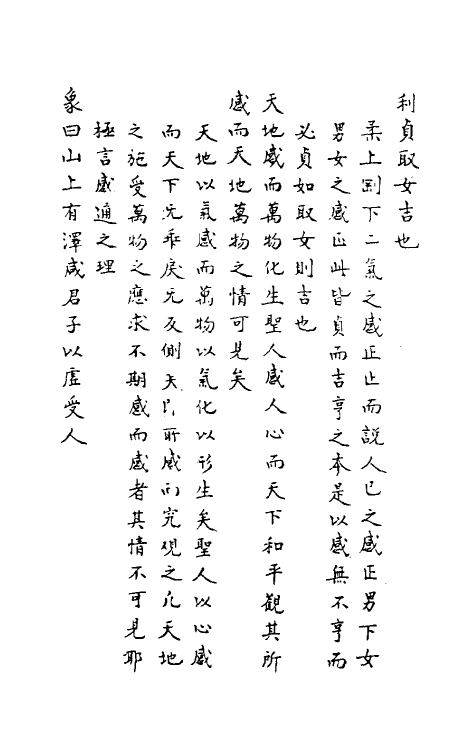 利貞取女吉也
柔上剛下二氣之感正止而說人已之感正男下女
男女之感正此皆貞而吉亨之本是以感無不亨而
必貞如取女則吉也
天地感而萬物化生聖人感人心而天下和平觀其所
感而天地萬物之情可見矣
天地以氣感而萬物以氣化以形生矣聖人以心感
而天下无乖戾无反側矣所感而究觀之凡天地
之施受萬物之應求不期感而感者其情不可見耶
極言感通之理
象曰山上有澤咸君子以虛受人